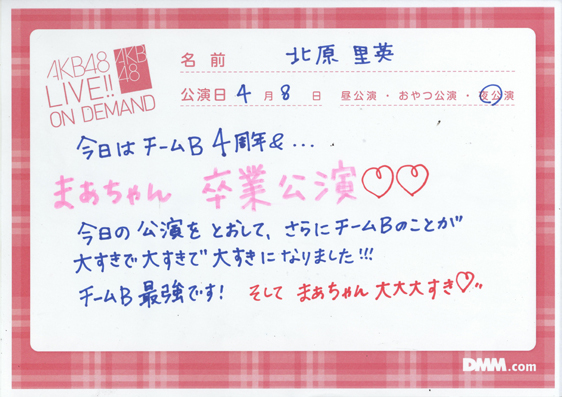 AKB48
LIVE!!
ON DEMAND
AKB
48
名前 北原里英
公演日 4月8日 昼公演・おやつ公演・夜公演
今日はチームB 4周年&...
まあちゃん 卒業公演♡♡
今日の公演をとおして、さらにチームBのことが
大すきで大すきで大すきになりました!!!
チームB最強です! そして まあちゃん大大大すき♡"
DMM.com